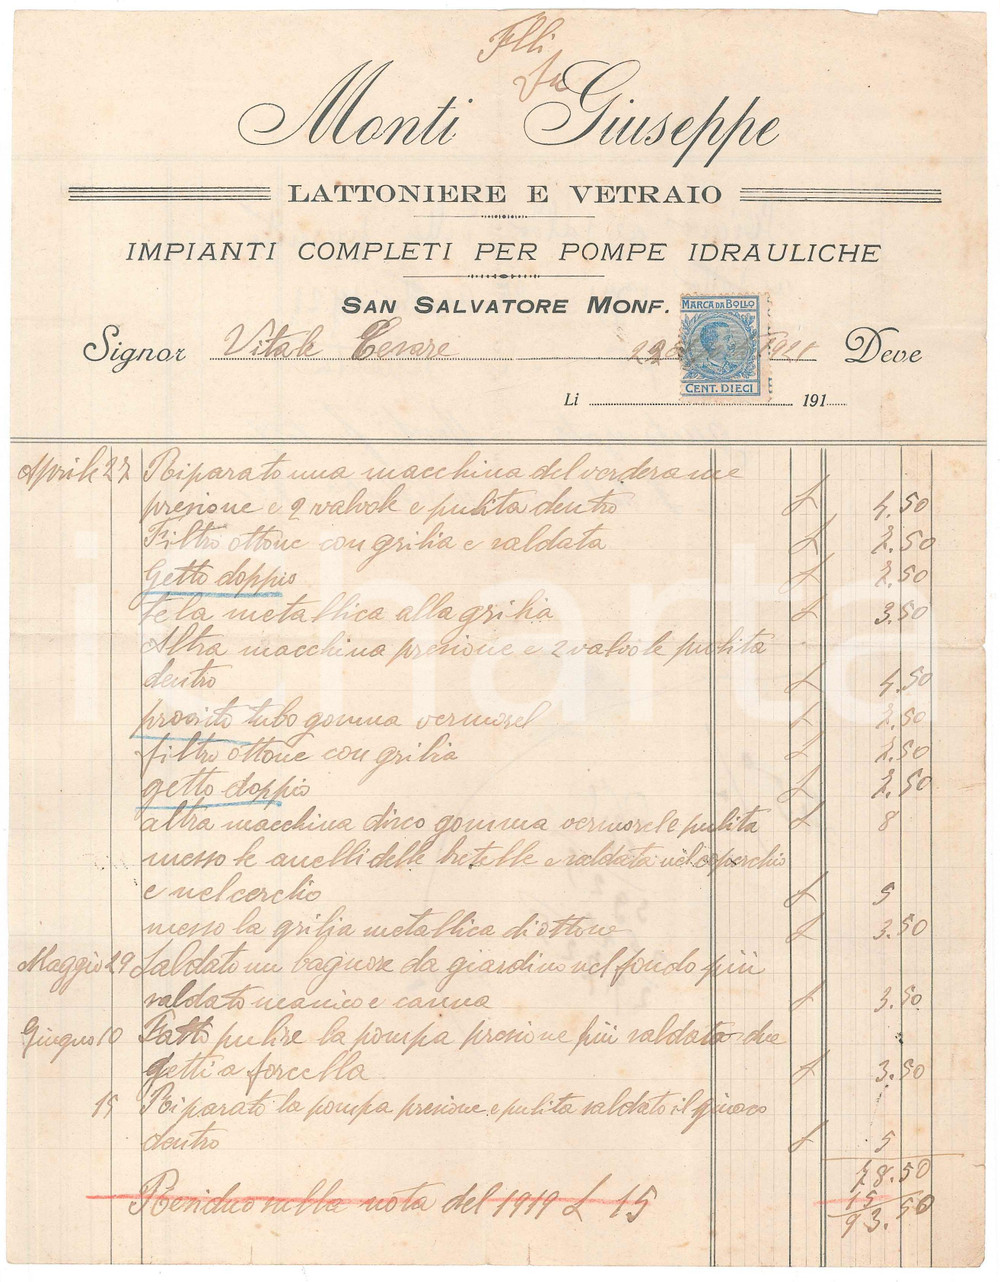 Flli
fu
Monti Giuseppe
LATTONIERE E VETRAIO
IMPIANTI COMPLETI PER POMPE IDRAULICHE
SAN SALVATORE MONF.
MARCA DA BOLLO
CENT. DIECI
Signor Vitale Cesare 1921 Deve
Li 191
Aprile 27 Riparato una macchina del verderame
presione e 2 valvole e pulita dentro £ 4.50
Filtro ottone con grilia e saldata £ 2.50
Getto doppio £ 2.50
tela metallica alla grilia £ 3.50
Altra macchina presione e 2 valvole pulita
dentro £ 4.50
tubo gomma vermosel £ 2.50
filtro ottone con grilia £ 2.50
getto doppio £ 2.50
altra macchina disco gomma vermosel e pulita £ 8
messo le anelli delle bretelle e saldata nel coperchio
e nel cerchio £ 5
messo la grilia metallica di ottone £ 3.50
Maggio 29 Saldato un bagnore da giardino nel fondo più
saldato manico e canna £ 3.50
Giugno 10 Fatto pulire la pompa presione più saldata due
getti a forcella £ 3.50
15 Riparato la pompa presione e pulita saldato il
dentro £ 5
78.50
Residuo nella nota del 1919 £ 15 15
93.50
incharta